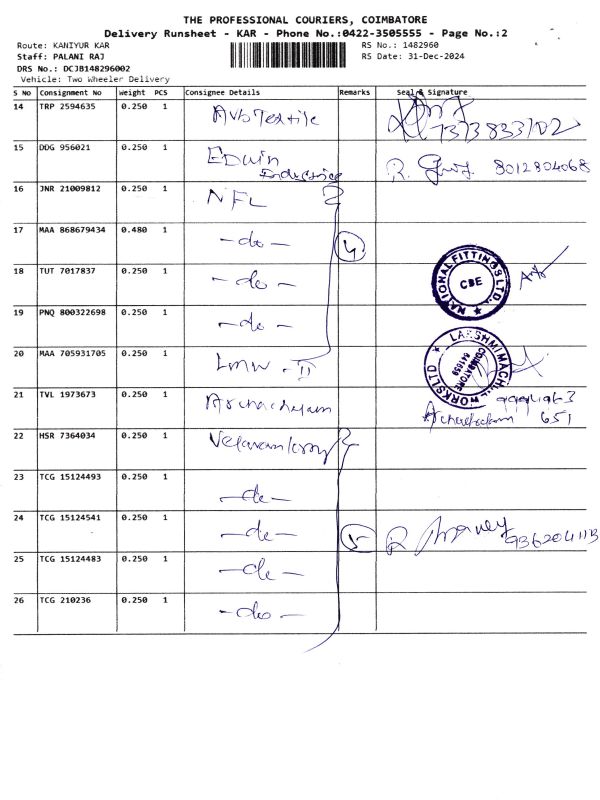 THE PROFESSIONAL COURIERS, COIMBATORE
Delivery Runsheet - KAR - Phone No.:0422-3505555 - Page No.:2
Route: KANIYUR KAR
RS No.: 1482960
Staff: PALANI RAJ
RS Date: 31-Dec-2024
DRS No.: DCJB148296002
Vehicle: Two Wheeler Delivery
S No Consignment No Weight PCS Consignee Details Remarks Seal & Signature
14 TRP 2594635 0.250 1 Textile
7373833702
15 DDG 956021 0.250 1 Edwin
R. 8012804068
16 JNR 21009812 0.250 1 NFL
17 MAA 868679434 0.480 1 -do- 4
18 TUT 7017837 0.250 1 -do- NATIONAL FITTINGS LTD. CBE
19 PNQ 800322698 0.250 1 -do-
20 MAA 705931705 0.250 1 LMW - II LAKSHMI MACHINE WORKS LTD COIMBATORE 641659
21 TVL 1973673 0.250 1
651
22 HSR 7364034 0.250 1
23 TCG 15124493 0.250 1 -do-
24 TCG 15124541 0.250 1 -do- 5 R
25 TCG 15124483 0.250 1 -do-
26 TCG 210236 0.250 1 -do-